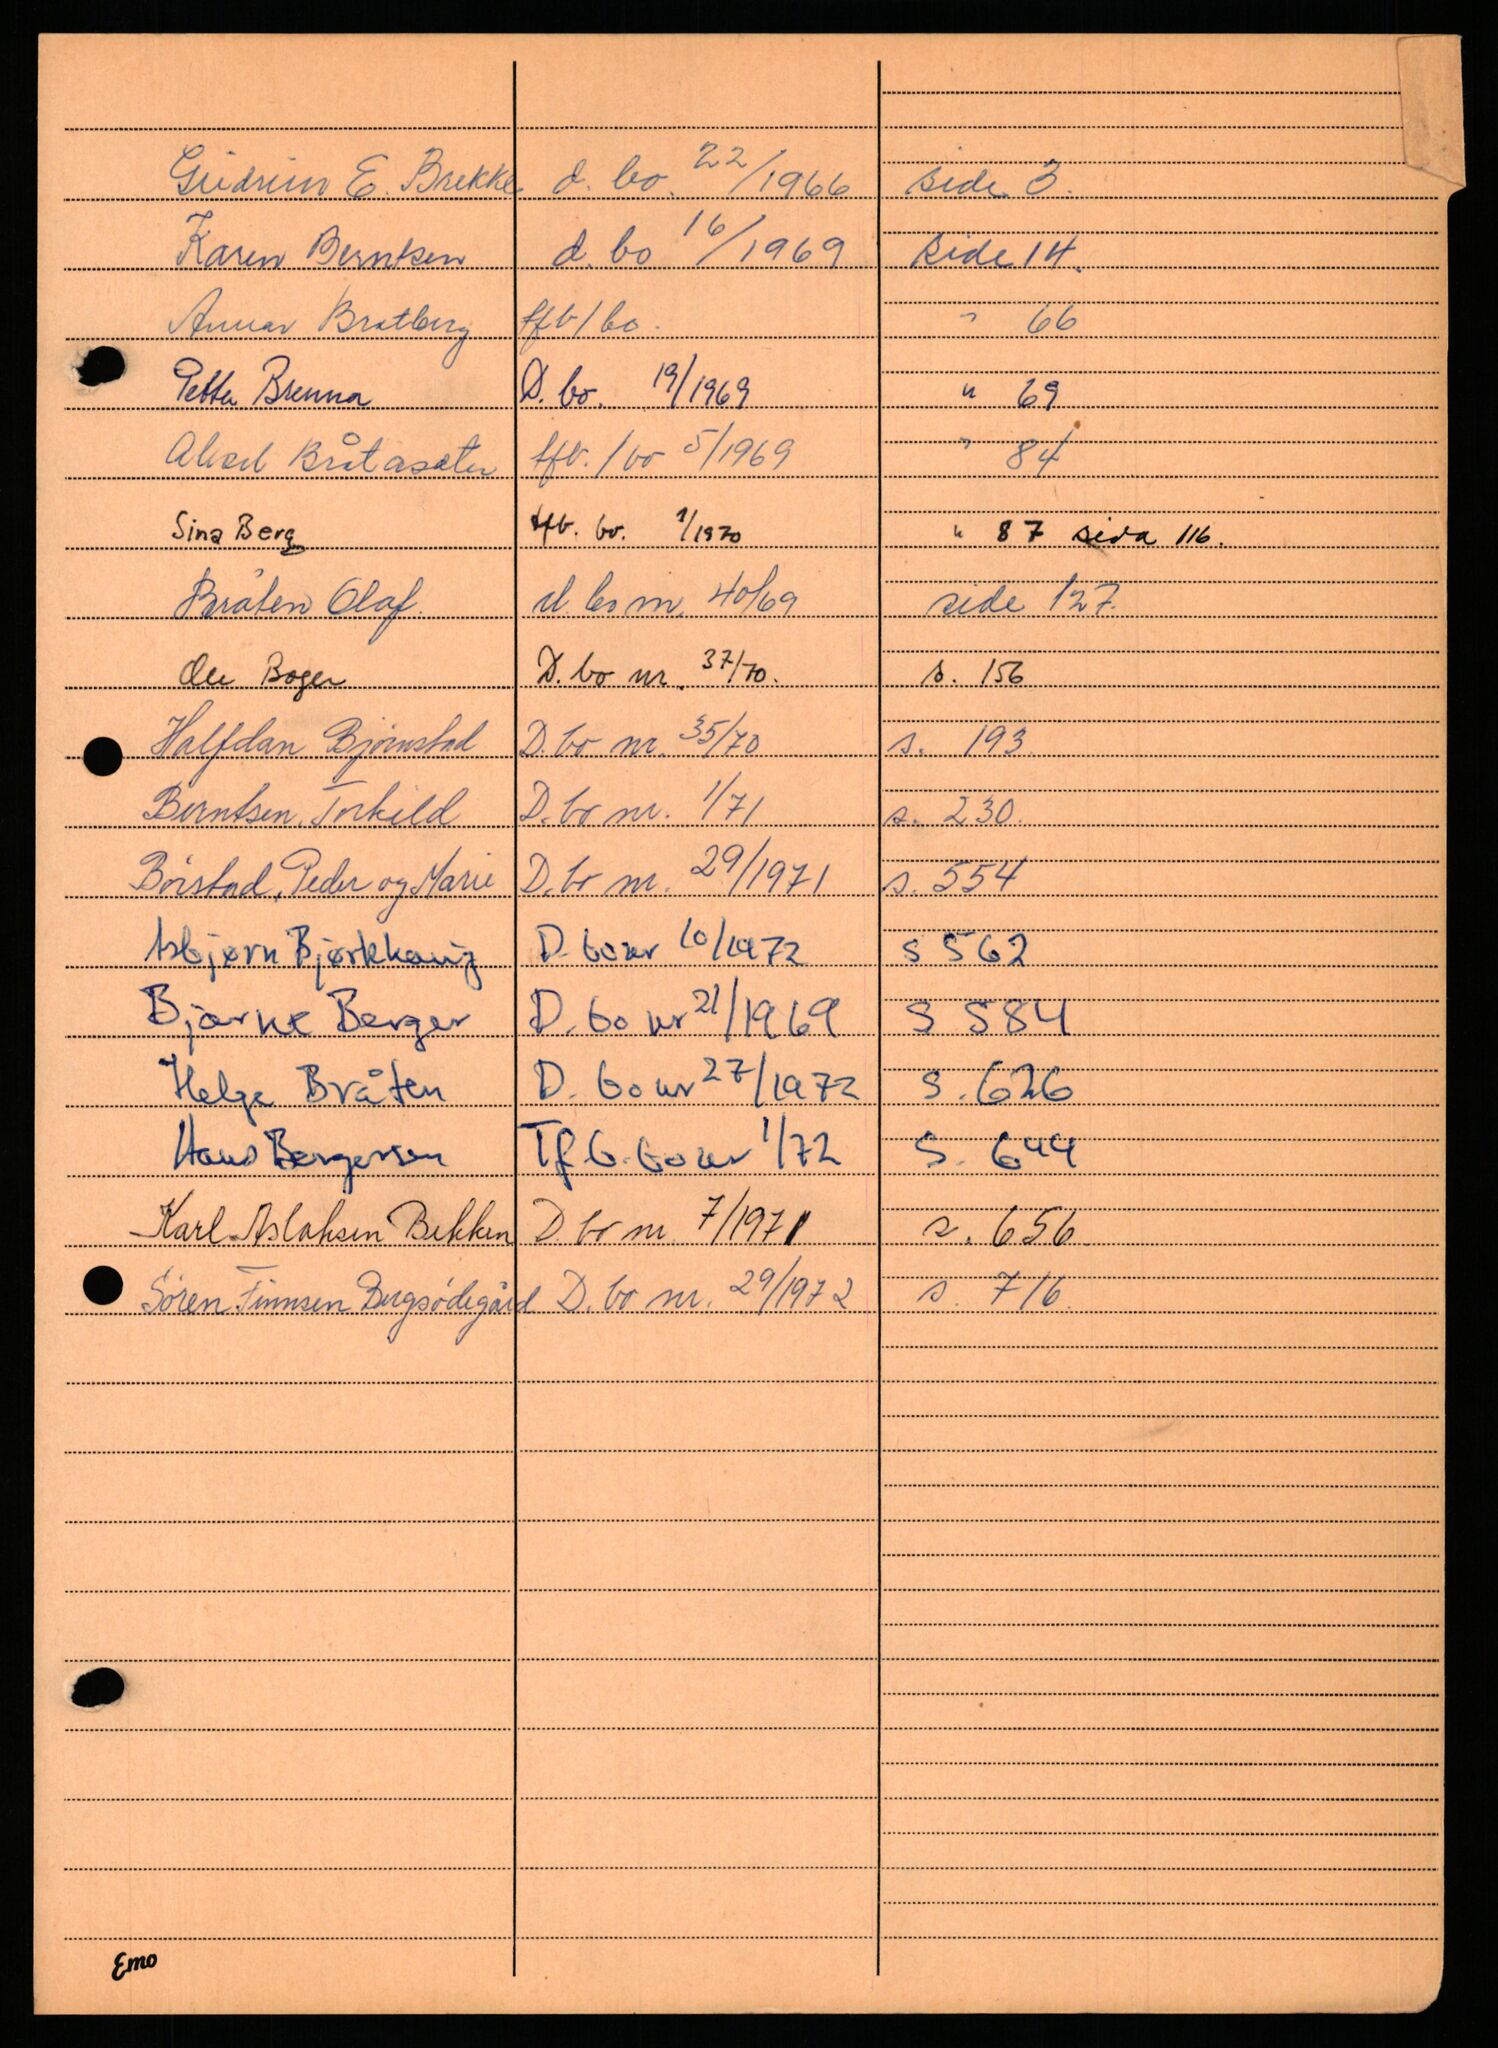 Gudrun E. Brekke d. bo. 22/1966 side 3.
Karen Berntsen d. bo 16/1969 side 14.
Annar Bratberg tfb/bo. " 66
Petter Brenna D. bo. 19/1969 " 69
Aksel Bråtasæter tfb. /bo 5/1969 " 84
Sina Berg tfb. bo. 1/1970 " 87 sida 116.
Bråten Olaf. d. bo nr. 40/69 side 127.
Ole Bogen D. bo nr. 37/70. s. 156
Halfdan Bjørnstad D. bo nr. 35/70 s. 193
Berntsen, Torkild D. bo nr. 1/71 s. 230.
Börstad, Peder og Marie D. bo nr. 29/1971 s. 554
Asbjørn Bjørkhaug D. bo nr 10/1972 s 562
Bjarne Berger D. bo nr 21/1969 s 584
Helge Bråten D. bo nr 27/1972 s. 626
Hans Bergersen Tfb. bo nr 1/72 s. 644
Karl Aslaksen Bekken D. bo nr. 7/1971 s. 656.
Sören Finnsen Bergsödegård D. bo nr. 29/1972 s. 716.
Emo